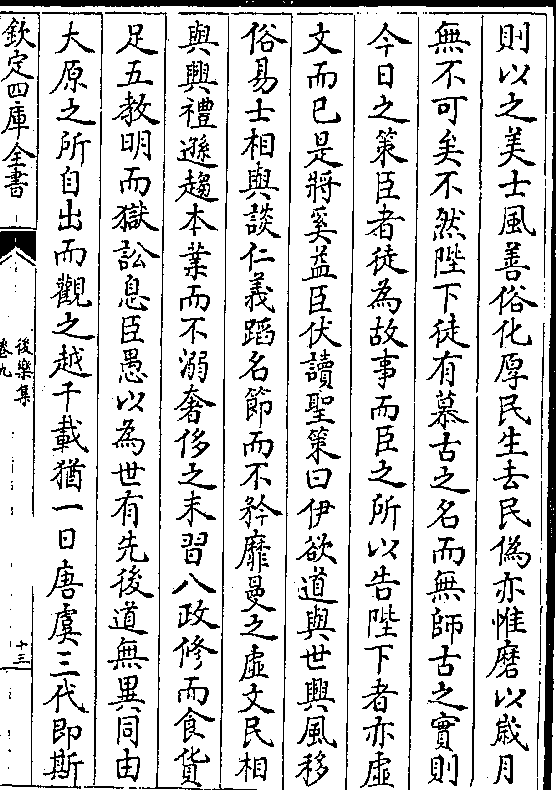 則以之美士風善俗化厚民生去民偽亦惟磨以嵗月
無不可矣不然陛下徒有慕古之名而無師古之實則
今日之策臣者徒為故事而臣之所以告陛下者亦虚
文而已是將奚益臣伏讀聖策曰伊欲道與世興風移
俗易士相與談仁義蹈名節而不矜靡曼之虚文民相
與興禮遜趨本業而不溺奢侈之末習八政修而食貨
足五教明而獄訟息臣愚以為世有先後道無異同由
大原之所自出而觀之越千載猶一日唐虞三代即斯
欽定四庫全書
後樂集
卷九
十三